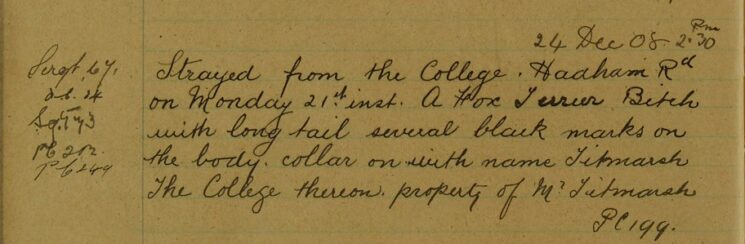 24 Dec 08. 2.30 Pm
Sergt 67.
Strayed from the College. Hadham Rd
on Monday 21st inst. A Fox Terrier Bitch
with long tail several black marks on
the body. collar on with name Titmarsh
The College thereon. property of Mr Titmarsh
PC 199.
PC 212.
PC 249